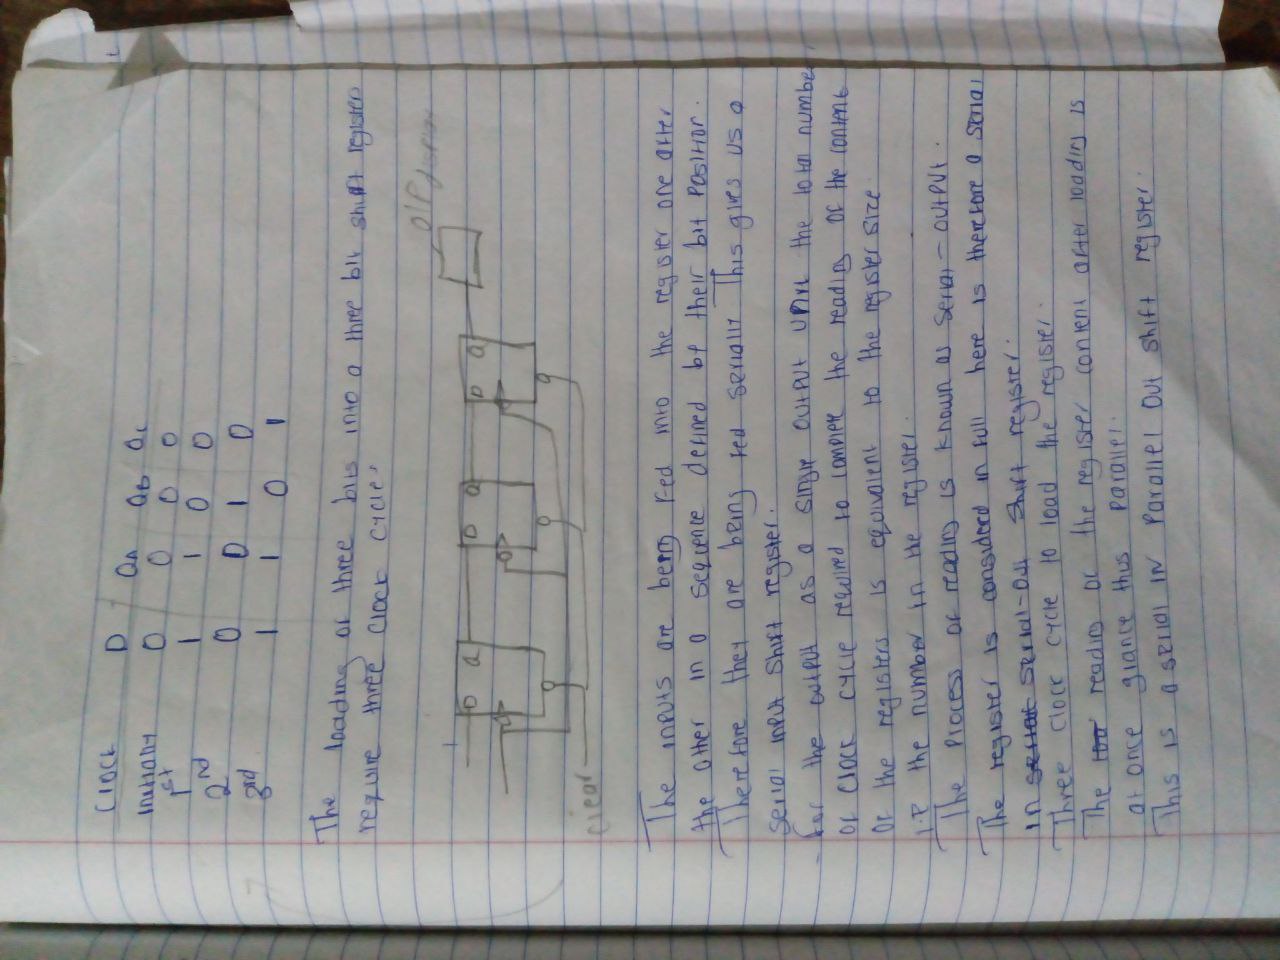 Clock D QA QB QC
Initially 0 0 0 0
1st 1 1 0 0
2nd 0 0 1 0
3rd 1 1 0 1
The loading of three bits into a three bit shift register
require three clock cycles
O/P display
1
D Q D Q D Q
clear
The inputs are being fed into the register one after
the other in a sequence defined by their bit position.
Therefore they are being fed serially This gives us a
serial input shift register.
- For the output as a single output unit the total number
of clock cycle required to complete the reading of the content
of the registers is equivalent to the register size
i.e the number in the register.
The process of reading is known as serial-output.
The register is considerd in full here is therefore a serial
in serial serial-out shift register.
Three clock cycle to load the register.
The reading of the register content after loading is
at once glance thus parallel.
This is a serial in parallel out shift register.